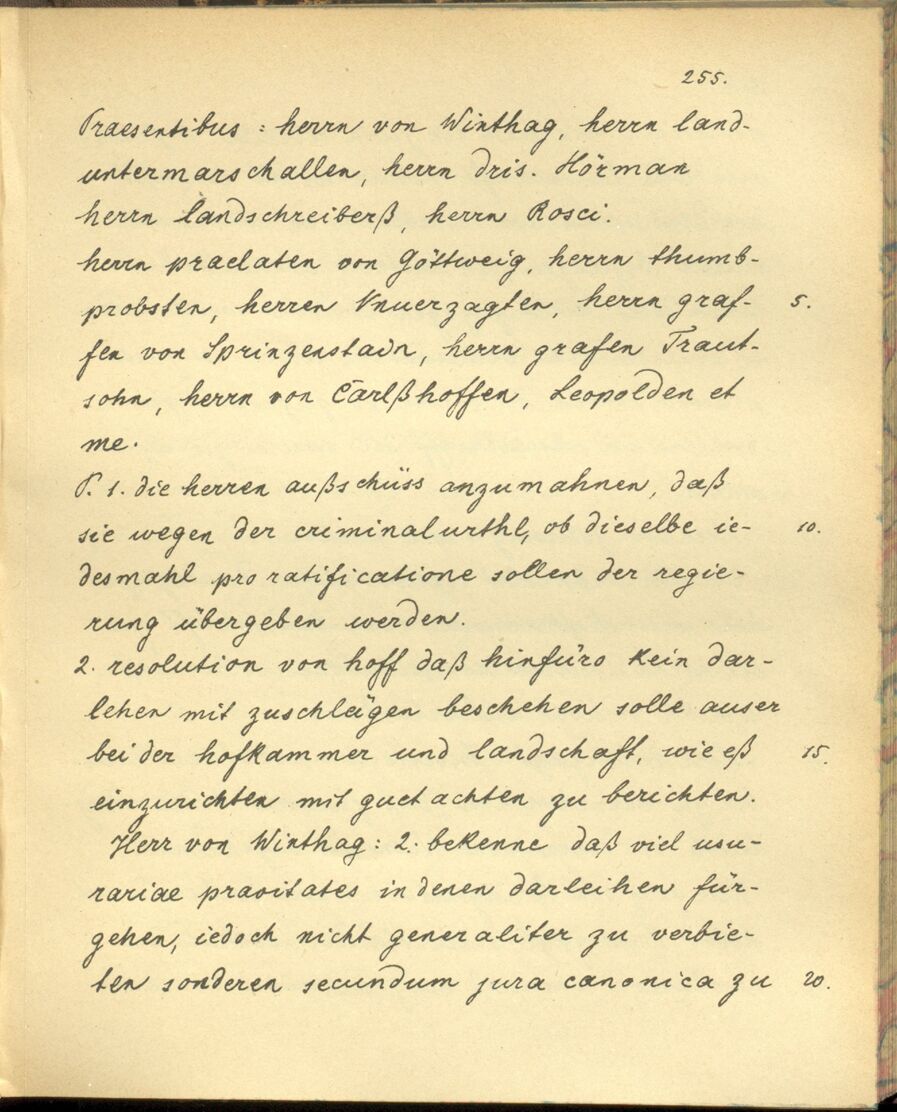 255.
Praesentibus: herrn von Winthag, herrn land-
untermarschallen, herrn dris. Hörman
herrn landschreiberß, herrn Rosci.
herrn praelaten von Göttweig, herrn thumb-
probsten, herren Vnuerzagten, herrn graf- 5.
fen von Sprinzenstain, herrn grafen Traut-
sohn, herrn von Carlßhoffen, Leopolden et
me.
P. 1. die herren außschüss anzumahnen, daß
sie wegen der criminalurthl, ob dieselbe ie- 10.
desmahl pro ratificatione sollen der regie-
rung übergeben werden.
2. resolution von hoff daß hinfüro kein dar-
lehen mit zuschlägen beschehen solle auser
bei der hofkammer und landschaft, wie eß 15.
einzurichten mit guetachten zu berichten.
Herr von Winthag: 2. bekenne daß viel usu-
rariae pravitates in denen darleihen für-
gehen, iedoch nicht generaliter zu verbie-
ten sonderen secundum jura canonica zu 20.